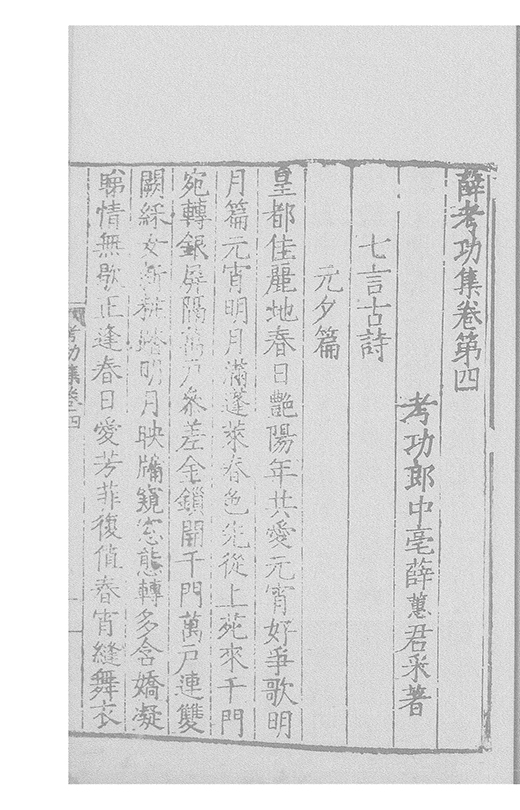 薛考功集卷第四
考功郎中亳薛蕙君采著
七言古詩
元夕篇
皇都佳麗地春日艷陽年共愛元宵好爭歌明
月篇元宵明月滿蓬萊春色先從上苑來千門
宛轉銀屏隔萬戶參差金鎖開千門萬戶連雙
闕綵女新粧踏明月映牖窺窓態轉多含嬌凝
睇情無歇正逢春日愛芳菲復值春宵縫舞衣
考功集卷四